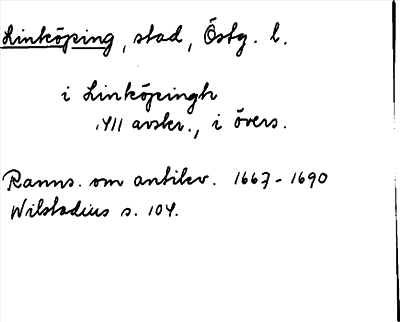 Linköping, stad, Östg. l.
i Linköpingh
1411 avskr., i övers.
Ranns. om antikv. 1667-1690
Wilstadius s. 104.